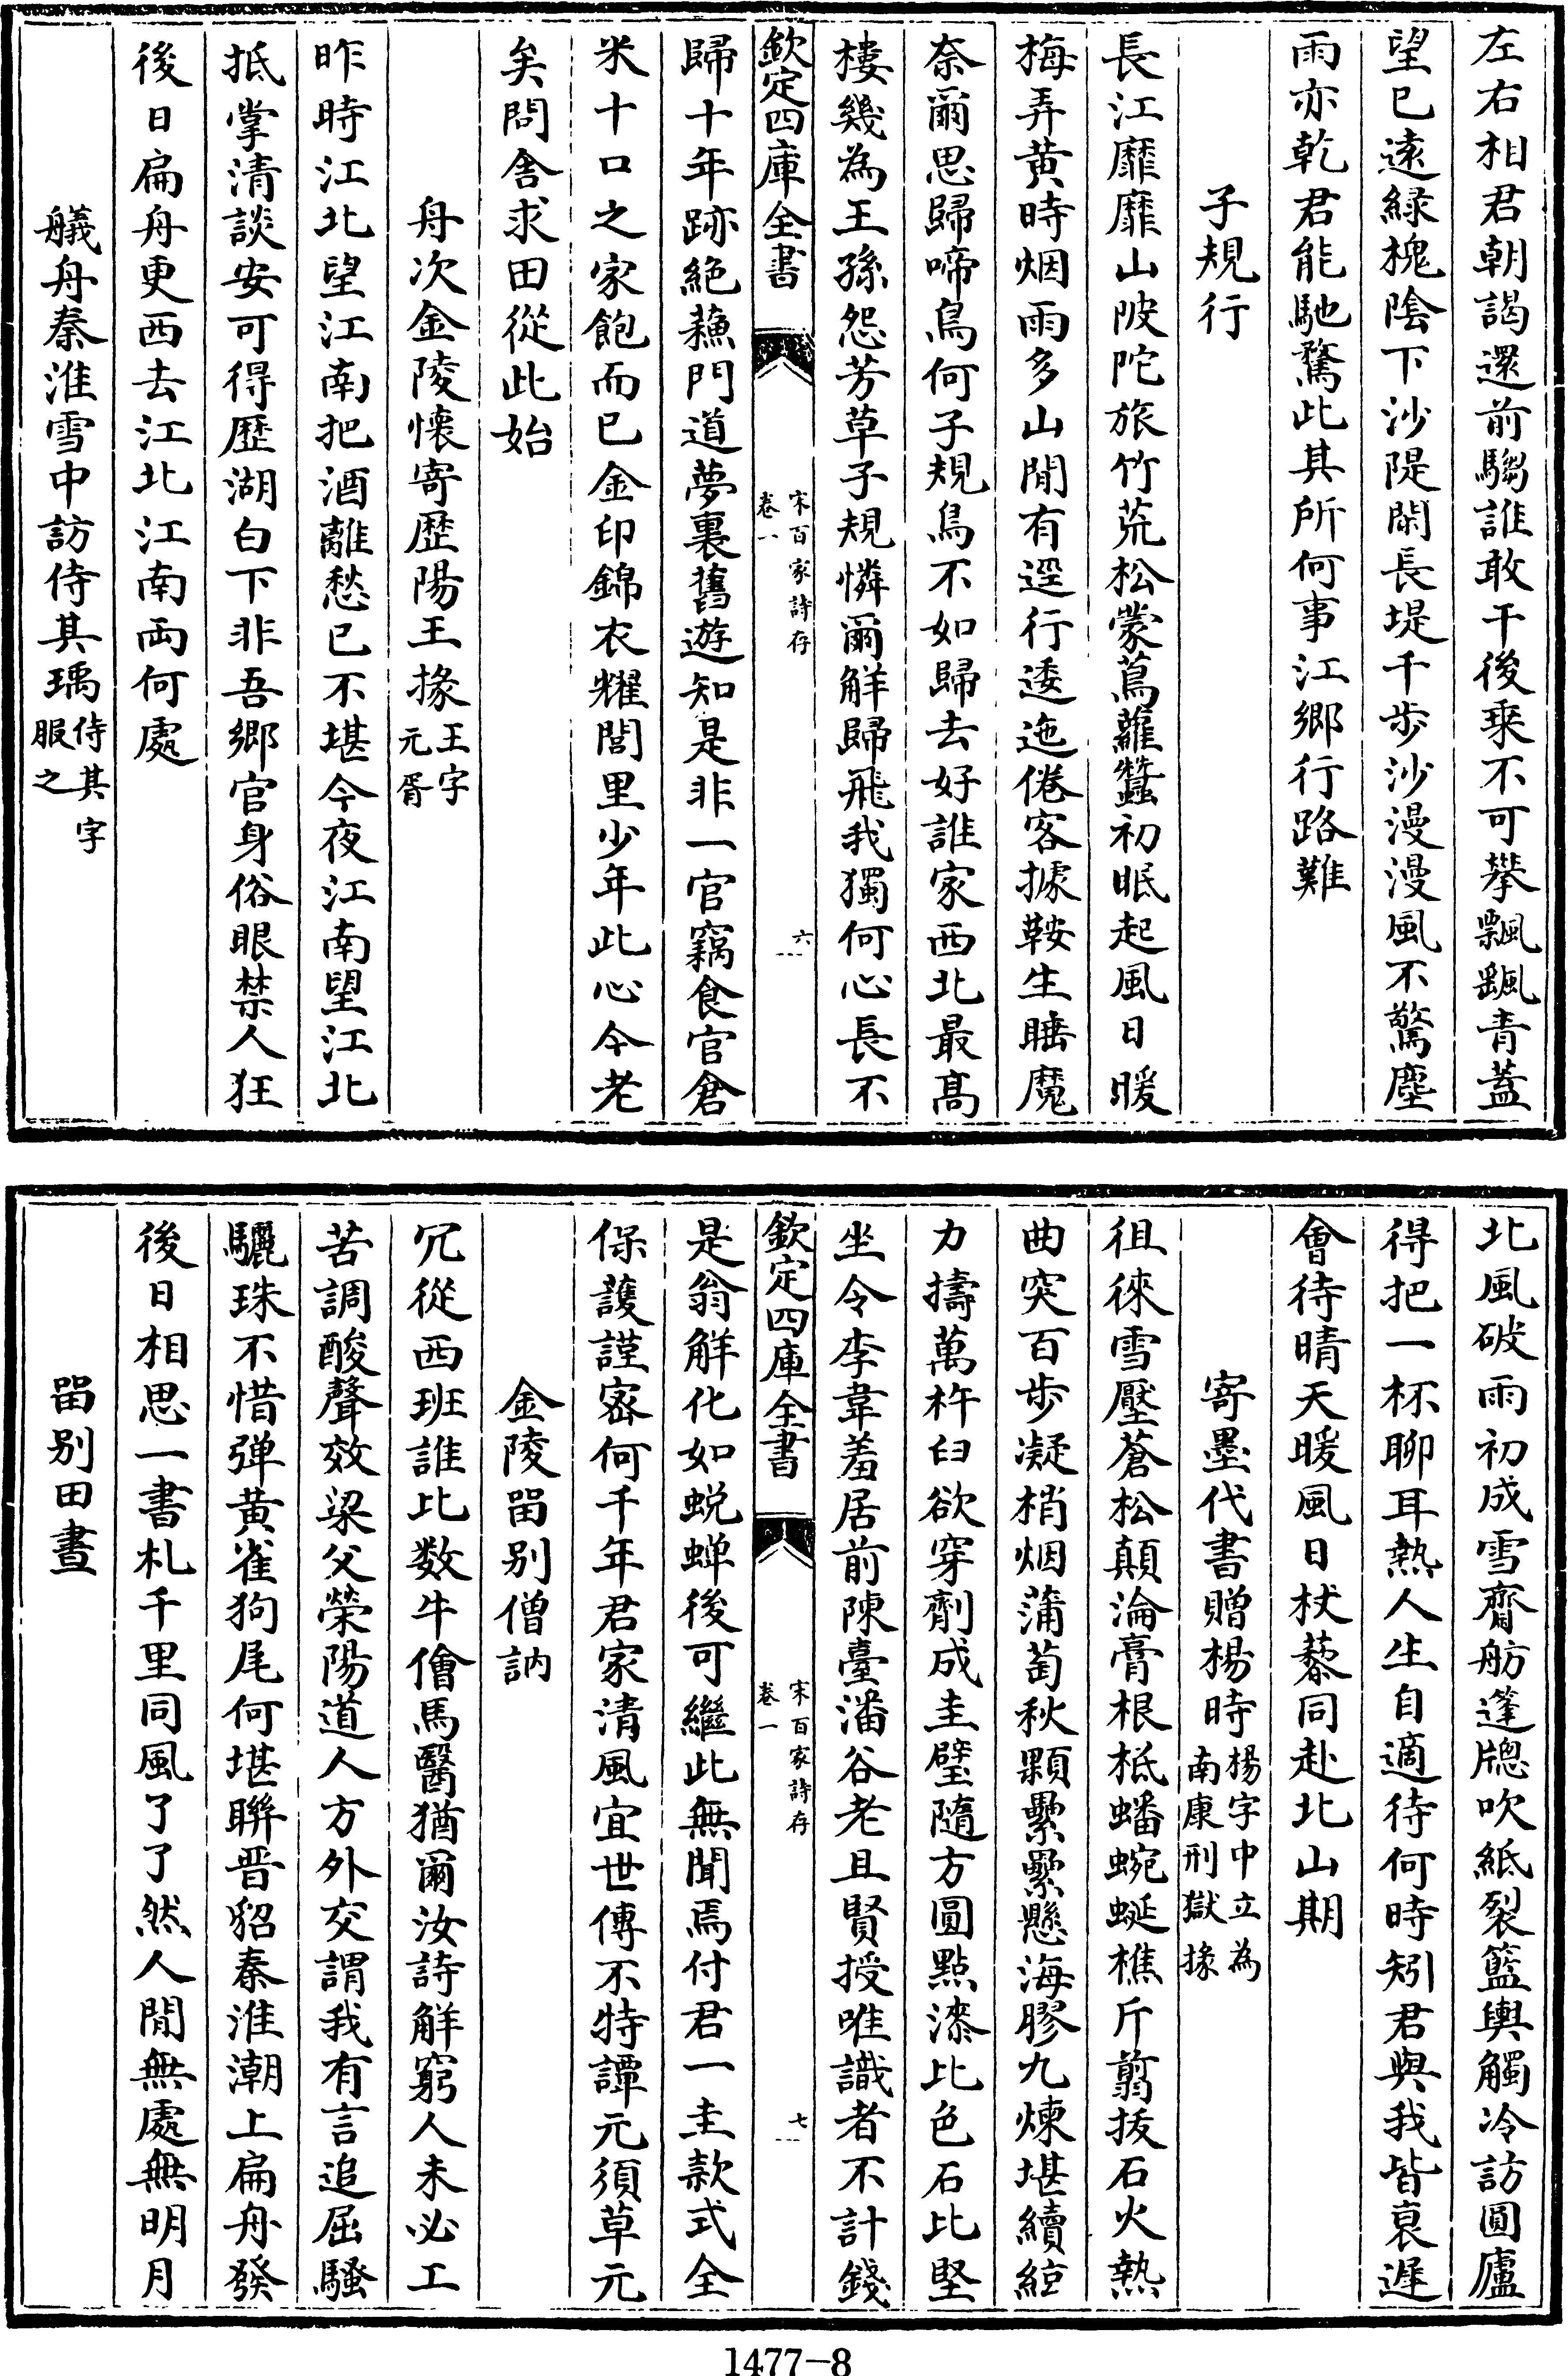 左右相君朝謁還前騶誰敢干後乗不可攀飄飄青蓋
望已遠緑槐陰下沙隄閑長堤千步沙漫漫風不驚塵
雨亦乾君能馳騖此其所何事江鄉行路難
子規行
長江靡靡山陂陀旅竹荒松蒙蔦蘿蠶初眠起風日暖
梅弄黄時烟雨多山間有逕行逶迤倦客據鞍生睡魔
奈爾思歸啼鳥何子規鳥不如歸去好誰家西北最髙
樓幾為王孫怨芳草子規憐爾解歸飛我獨何心長不
欽定四庫全書
宋百家詩存
卷一
六
歸十年跡絶蘓門道夢裏舊遊知是非一官竊食官倉
米十口之家飽而已金印錦衣耀閭里少年此心今老
矣問舎求田從此始
舟次金陵懷寄歴陽王掾王字元胥
昨時江北望江南把酒離愁已不堪今夜江南望江北
抵掌清談安可得歴湖白下非吾鄉官身俗眼禁人狂
後日扁舟更西去江北江南兩何處
艤舟秦淮雪中訪侍其瑀侍其字服之
北風破雨初成雪齋舫篷牕吹紙裂籃輿觸冷訪圓廬
得把一杯聊耳熱人生自適待何時矧君與我皆衰遲
會待晴天暖風日杖藜同赴北山期
寄墨代書贈楊時楊字中立為南康刑獄掾
徂徠雪壓蒼松顛淪膏根柢蟠蜿蜒樵斤翦拔石火熱
曲突百步凝梢烟蒲萄秋顆纍纍懸海膠九煉堪續絃
力擣萬杵臼欲穿劑成圭璧隨方圓點漆比色石比堅
坐令李韋羞居前陳臺潘谷老且賢授唯識者不計錢
欽定四庫全書
宋百家詩存
卷一
七
是翁解化如蜕蝉後可繼此無聞焉付君一圭款式全
保護謹宻何千年君家清風宜世傳不特譚元須草元
金陵畱别僧訥
冗從西班誰比數牛儈馬醫猶爾汝詩解窮人未必工
苦調酸聲效梁父榮陽道人方外交謂我有言追屈騷
驪珠不惜弹黄雀狗尾何堪聨晋貂秦淮潮上扁舟發
後日相思一書札千里同風了了然人間無處無明月
畱别田晝
1477-8